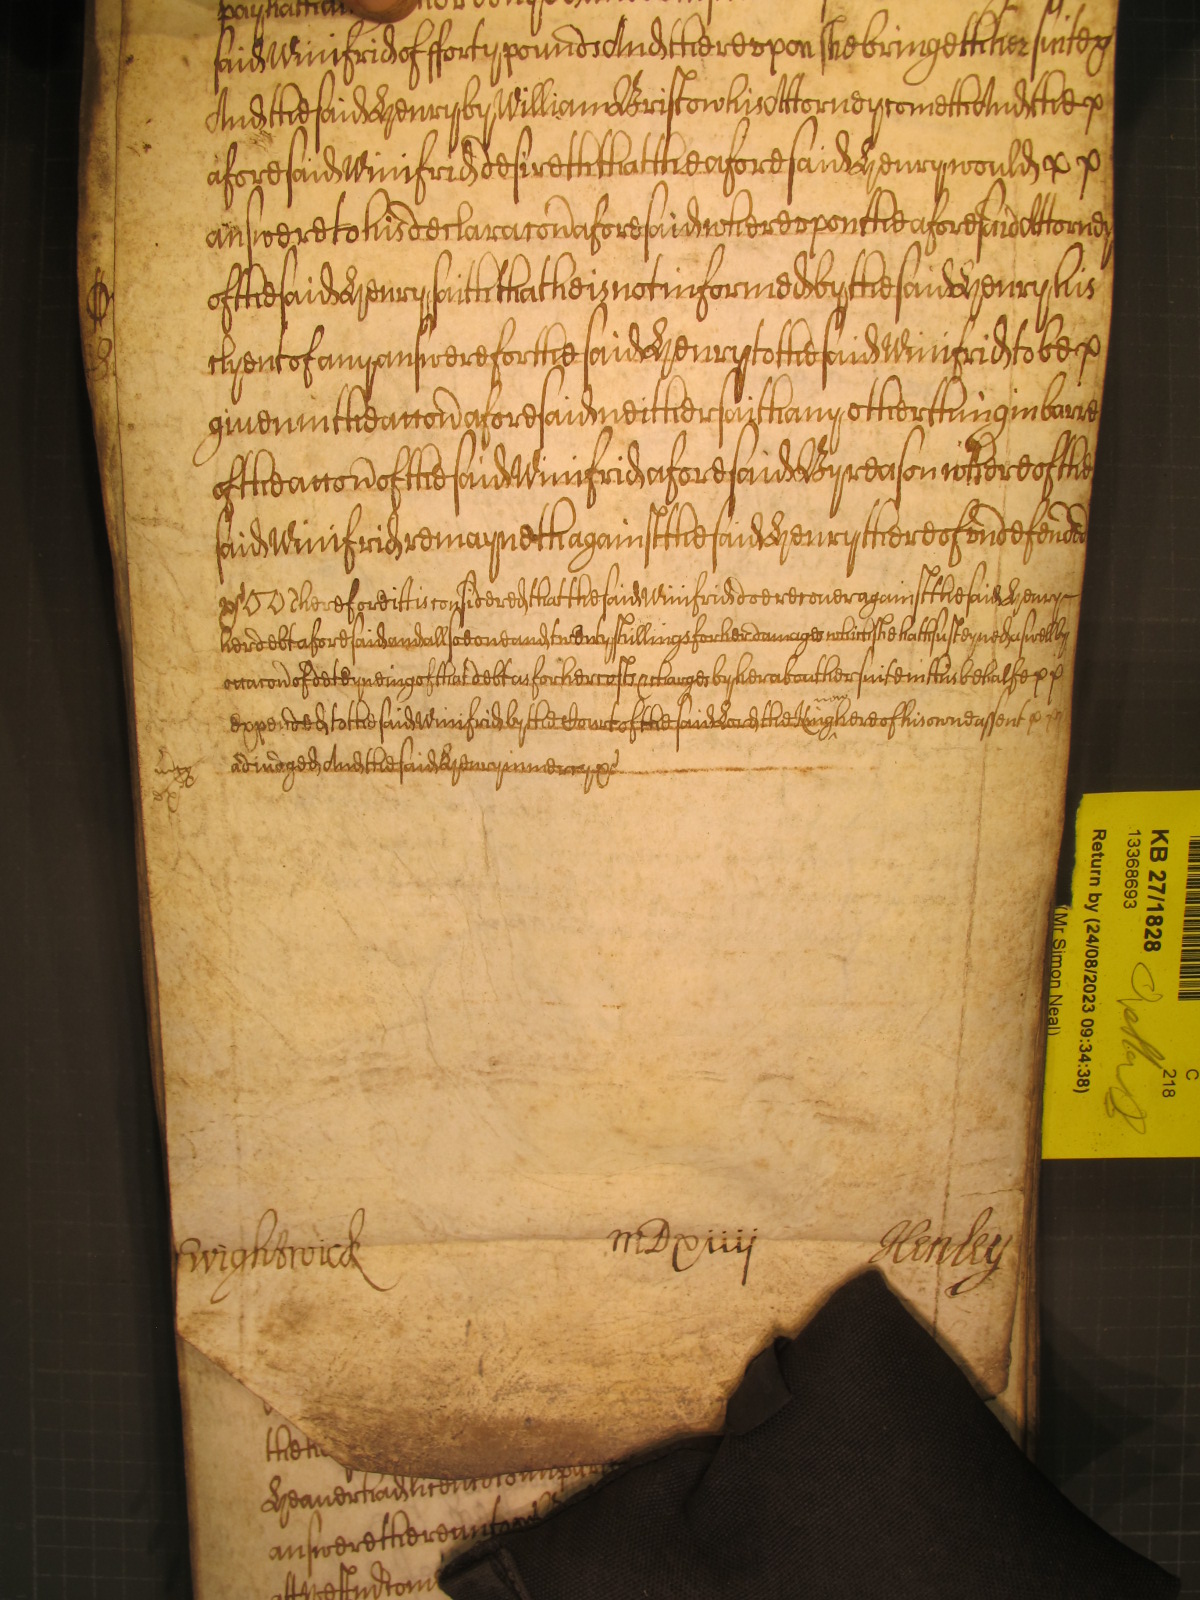 said Winifrid of fforty pounds And thereupon she bringeth her suite &
And the said Henry by William Bristow his Attorney cometh And the
aforesaid Winifrid desireth that the aforesaid Henry would
answere to his declaracon aforesaid whereupon the aforesaid Attorney
of the said Henry saith that he is not informed by the said Henry his
clyent of any answere for the said Henry to the said Winifrid to be
given in the accon aforesaid neither saith any other thing in barre
of the accon of the said Winifrid aforesaid By reason whereof the
said Winifrid remayneth against the said Henry thereof
Therefore itt is considered that the said Winifrid doe recover against the said Henry
her debt aforesaid and allsoe one and twenty shillings for her damages which she hath susteyned aswell by
occacon of deteyneing of that debt as for her costs & charges by her about her suite in this behalfe
expended to the said Winifrid by the Court of the said Lord the King now here of his owne assent
adiudged And the said Henry in mercy &c
Wightwick
MDxiiij
Henley
the
answere thereunto
KB 27/1828
13368693
Return by (24/08/2023 09:34:38)
(Mr Simon Neal)
C
218